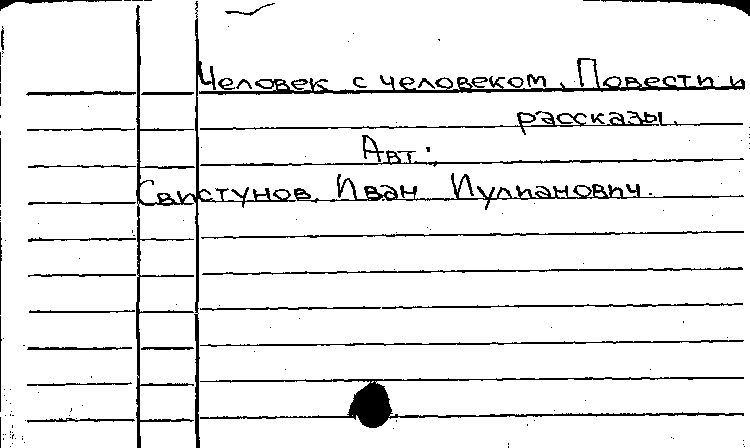 Человек с человеком. Повести и
рассказы.
Авт:
Свистунов, Иван Иулианович.